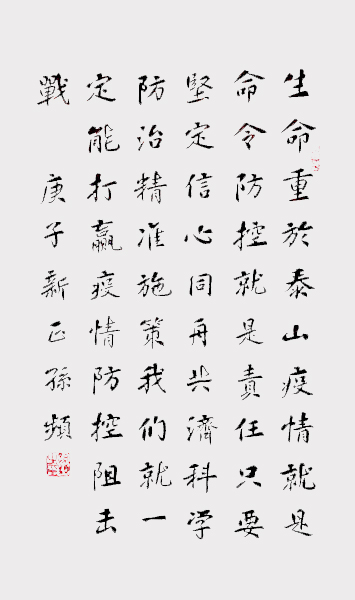 生命重於泰山疫情就是
命令防控就是責任只要
堅定信心同舟共濟科学
防治精准施策我们就一
定能打贏疫情防控阻击
戰 庚子新正孫頻